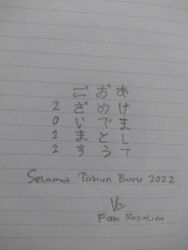 あけまして
おめでとう
ございます
2022
Selamat Tahun Baru 2022
Fani Rosalina